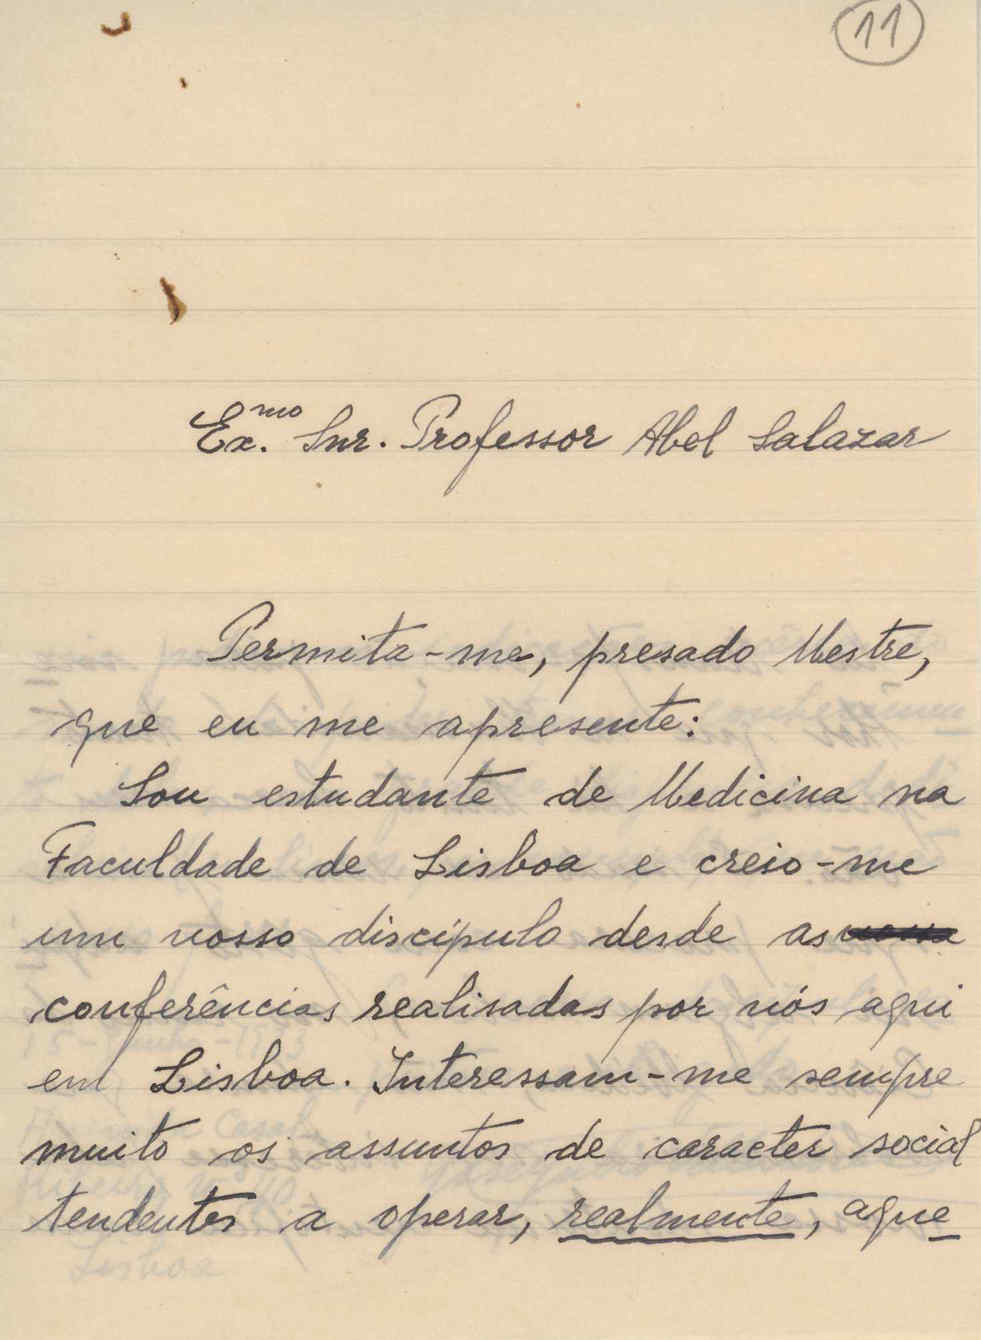 11
Ex.mo Snr. Professor Abel Salazar
Permita-me, presado Mestre,
que eu me apresente:
Sou estudante de Medicina na
Faculdade de Lisboa e creio-me
um vosso discípulo desde as
conferências realisadas por vós aqui
em Lisboa. Interessam-me sempre
muito os assuntos de caracter social
tendentes a operar, realmente, aque